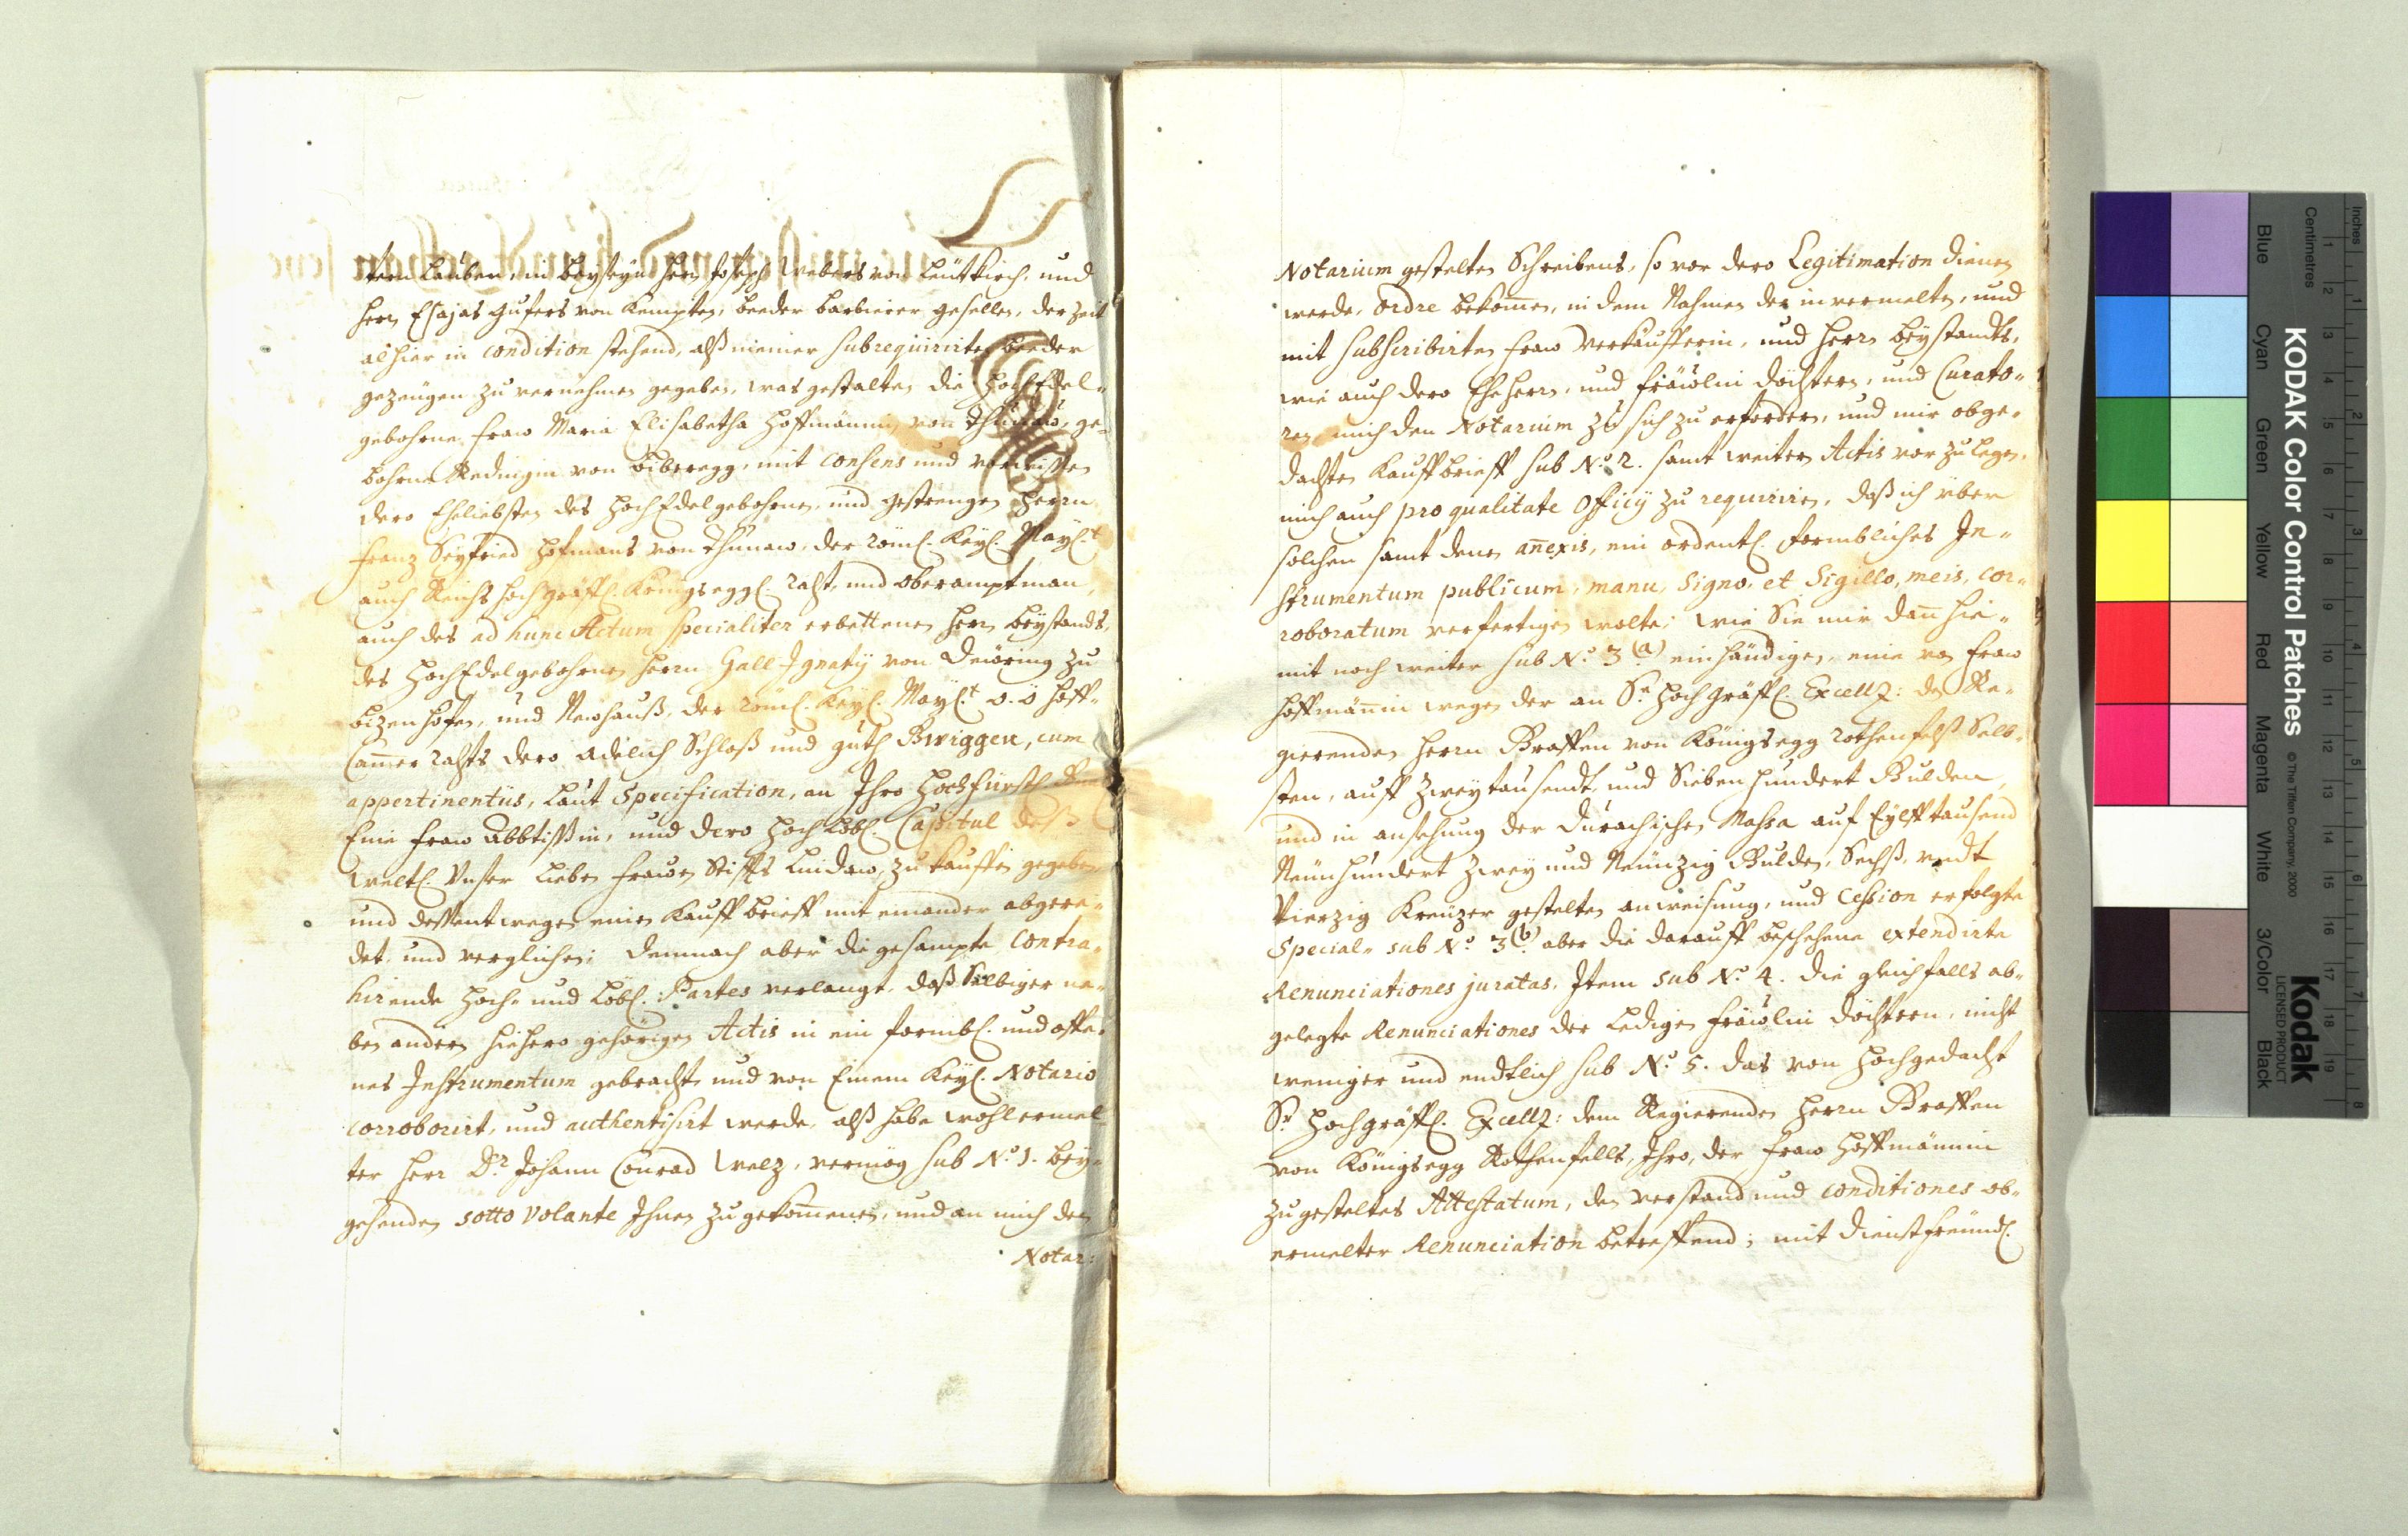 tern Lauben, in beyseyn Herr Joseph Webers von Leütkirch, und
Herr Esajas Gufers von Kempten, beeder barbierer gesellen, der Zeit
alhier in condition stehend, alß meiner subrequirirten beeder
gezeügen zu vernehmen gegeben, was gestalten die HochEdel-
gebohrne Fraw Maria Elisabetha Hoffmännin von Thunaw, ge-
bohrne Redingin von Biberegg, mit Consens und
dero Eheliebsten des HochEdelgebohrnen, und gestrengen Herrn
Franz Seyfried Hofmans von Thunaw, der Röml. Keyl. Mayl.t
auch Reichs Hochgräffl. Königseggl. Raht, und Oberamptman,
auch des ad hunc Actum specialiter erbettenen Herrn beystands,
des HochEdelgebohrnen Herrn Gall Ignatÿ von Deüring zu
bizenhofen, und Newhauß, der Röml. Keyl. Mayl.t O. Ö Hoff-
Cam̄er Rahts dero Adelich Schloß und guth Gwiggen, cum
appertinentiis, laut Specification, an Ihro Hochfürstl.
Eine Fraw Abbtißin, und dero HochLöbl. Capitul deß
Weltl. Unser Lieben Frawen Stiffts Lindaw, zu kauffen gegeben
und dessentwegen einen Kauffbrieff mit einander abgere-
det, und verglichen; demnach aber die gesampte Contra-
hirende Hoch- und Löbl. Partes verlangt, daß Selbiger ne-
ben andern hiehero gehörigen Actis in ein formbl. und offe-
nes Instrumentum gebracht, und von Einem Keyl. Notario
corroborirt, und authentisirt werde, alß habe wohlermel
ter Herr Dr. Johann Conrad Welz, vermög sub No. 1. bey-
gehenden sotto volante Ihnen zugekom̄enen, und an mich den
Notar:
Notarium gestelten Schreibens, so vor dero Legitimation dienen
werde, ordre bekom̄en, in dem Nahmen der invermelten, und
mit subscribirten Fraw Verkaufferin, und Herrn beystandts,
wie auch dero EheHerrn, und Fräwlin döchtern, und Curato-
ren mich den Notarium zu sich zu erfordern, und mir obge-
dachten Kauffbrieff sub No. 2. samt weitern Actis vor zu legen,
mich auch pro qualitate Officÿ zu requiriren, daß ich über
solchen samt denen an̄exis, ein ordentl. formbliches In-
strumentum publicum, manu, Signo, et Sigillo, meis, cor-
roboratum verfertigen wolte; wie Sie mir dan̄ hie-
mit noch weiter sub No. 3 (a) einhändigen, eine von Fraw
Hoffmän̄in wegen der an Sr. Hochgräffl. Excellz: den Re-
gierenden Herrn Graffen von Königsegg Rothenfelß Selb-
sten, auff Zweytausendt, und Siebenhundert Gulden,
und in ansehung der Durachischen Massa auf Eylfftausend
Neünhundert Zwey und Neünzig Gulden, Sechß, undt
Vierzig Kreüzer gestelten anweisung, und Cession erfolgte
Special- sub No. 3 (b) aber die darauff beschehene extendirte
Renunciationes juratas, Item sub No. 4. die gleichfalls ab-
gelegte Renunciationes der Ledigen Fräwlin döchtern, nicht
weniger und endtlich sub No. 5. das von Hochgedacht
Sr. Hochgräffl. Excellz: dem Regierenden Herrn Graffen
von Königsegg Rothenfells, Ihro, der Fraw Hoffmännin
zugesteltes Attestatum, den verstand und conditiones ob-
ermelter Renunciation betreffend; mit dienstfreündl.
KODAK Color Control Patches
© The Tiffen Company, 2000
Kodak
LICENSED PRODUCT
Inches
Centimetres
Blue
Cyan
Green
Yellow
Red
Magenta
White
3/Color
Black
1 2 3 4 5 6 7 8 9 10 11 12 13 14 15 16 17 18 19
1 2 3 4 5 6 7 8